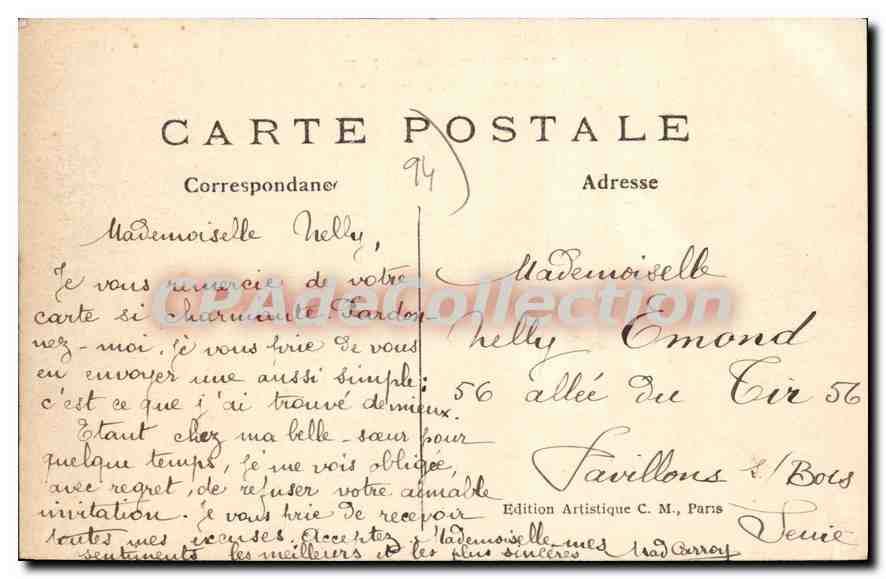 CARTE POSTALE
94
Correspondance
Adresse
Mademoiselle Nelly,
Je vous remercie de votre
carte si charmante. Pardon-
nez-moi, je vous prie de vous
en envoyer une aussi simple:
c'est ce que j'ai trouvé de mieux.
Etant chez ma belle-sœur pour
quelque temps, je me vois obligée,
avec regret, de refuser votre aimable
invitation. Je vous prie de recevoir
toutes mes excuses. Acceptez, Mademoiselle, mes
sentiments les meilleurs et les plus sincères
Mademoiselle
Nelly Emond
56 allée du Tir 56
Pavillons s/ Bois
Seine
Edition Artistique C. M., Paris
CPAdeCollection